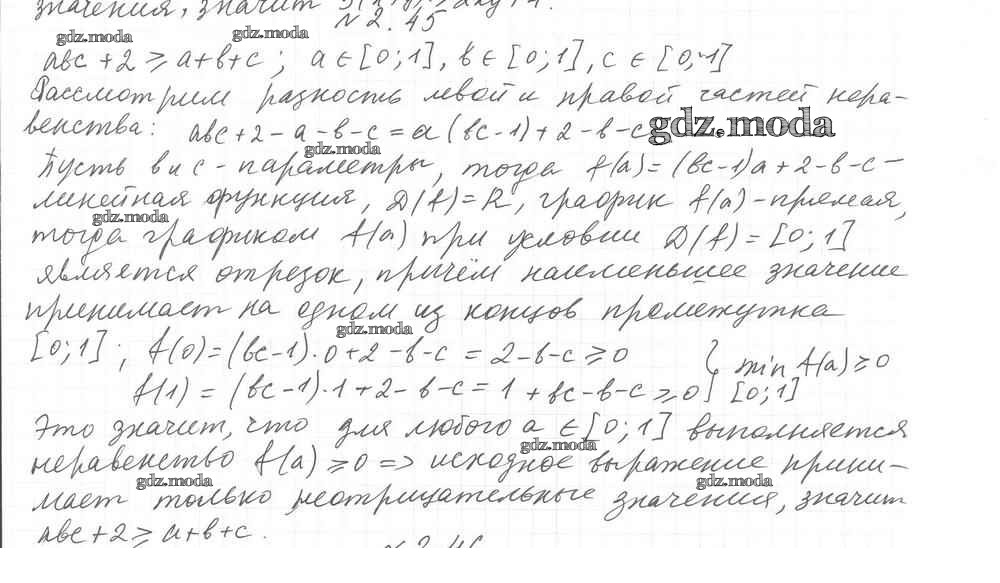 значения, значит
№ 2.45
gdz.moda gdz.moda
abc + 2 ⩾ a+b+c ; a ∈ [0;1], b ∈ [0;1], c ∈ [0;1]
Рассмотрим разность левой и правой частей нера-
венства: abc+2-a-b-c = a(bc-1)+2-b-c gdz.moda
gdz.moda
Пусть b и c - параметры, тогда f(a)=(bc-1)a+2-b-c -
линейная функция, D(f)=R, график f(a)-прямая,
gdz.moda
тогда графиком f(a) при условии D(f)=[0;1]
является отрезок, причём наименьшее значение
принимает на одном из концов промежутка
gdz.moda
[0;1]; f(0)=(bc-1)·0+2-b-c = 2-b-c ⩾ 0 } min f(a) ⩾ 0
f(1) = (bc-1)·1+2-b-c = 1+bc-b-c ⩾ 0 [0;1]
Это значит, что для любого a ∈ [0;1] выполняется
gdz.moda
неравенство f(a) ⩾ 0 => исходное выражение прини-
gdz.moda gdz.moda
мает только неотрицательные значения, значит
abc+2 ⩾ a+b+c.